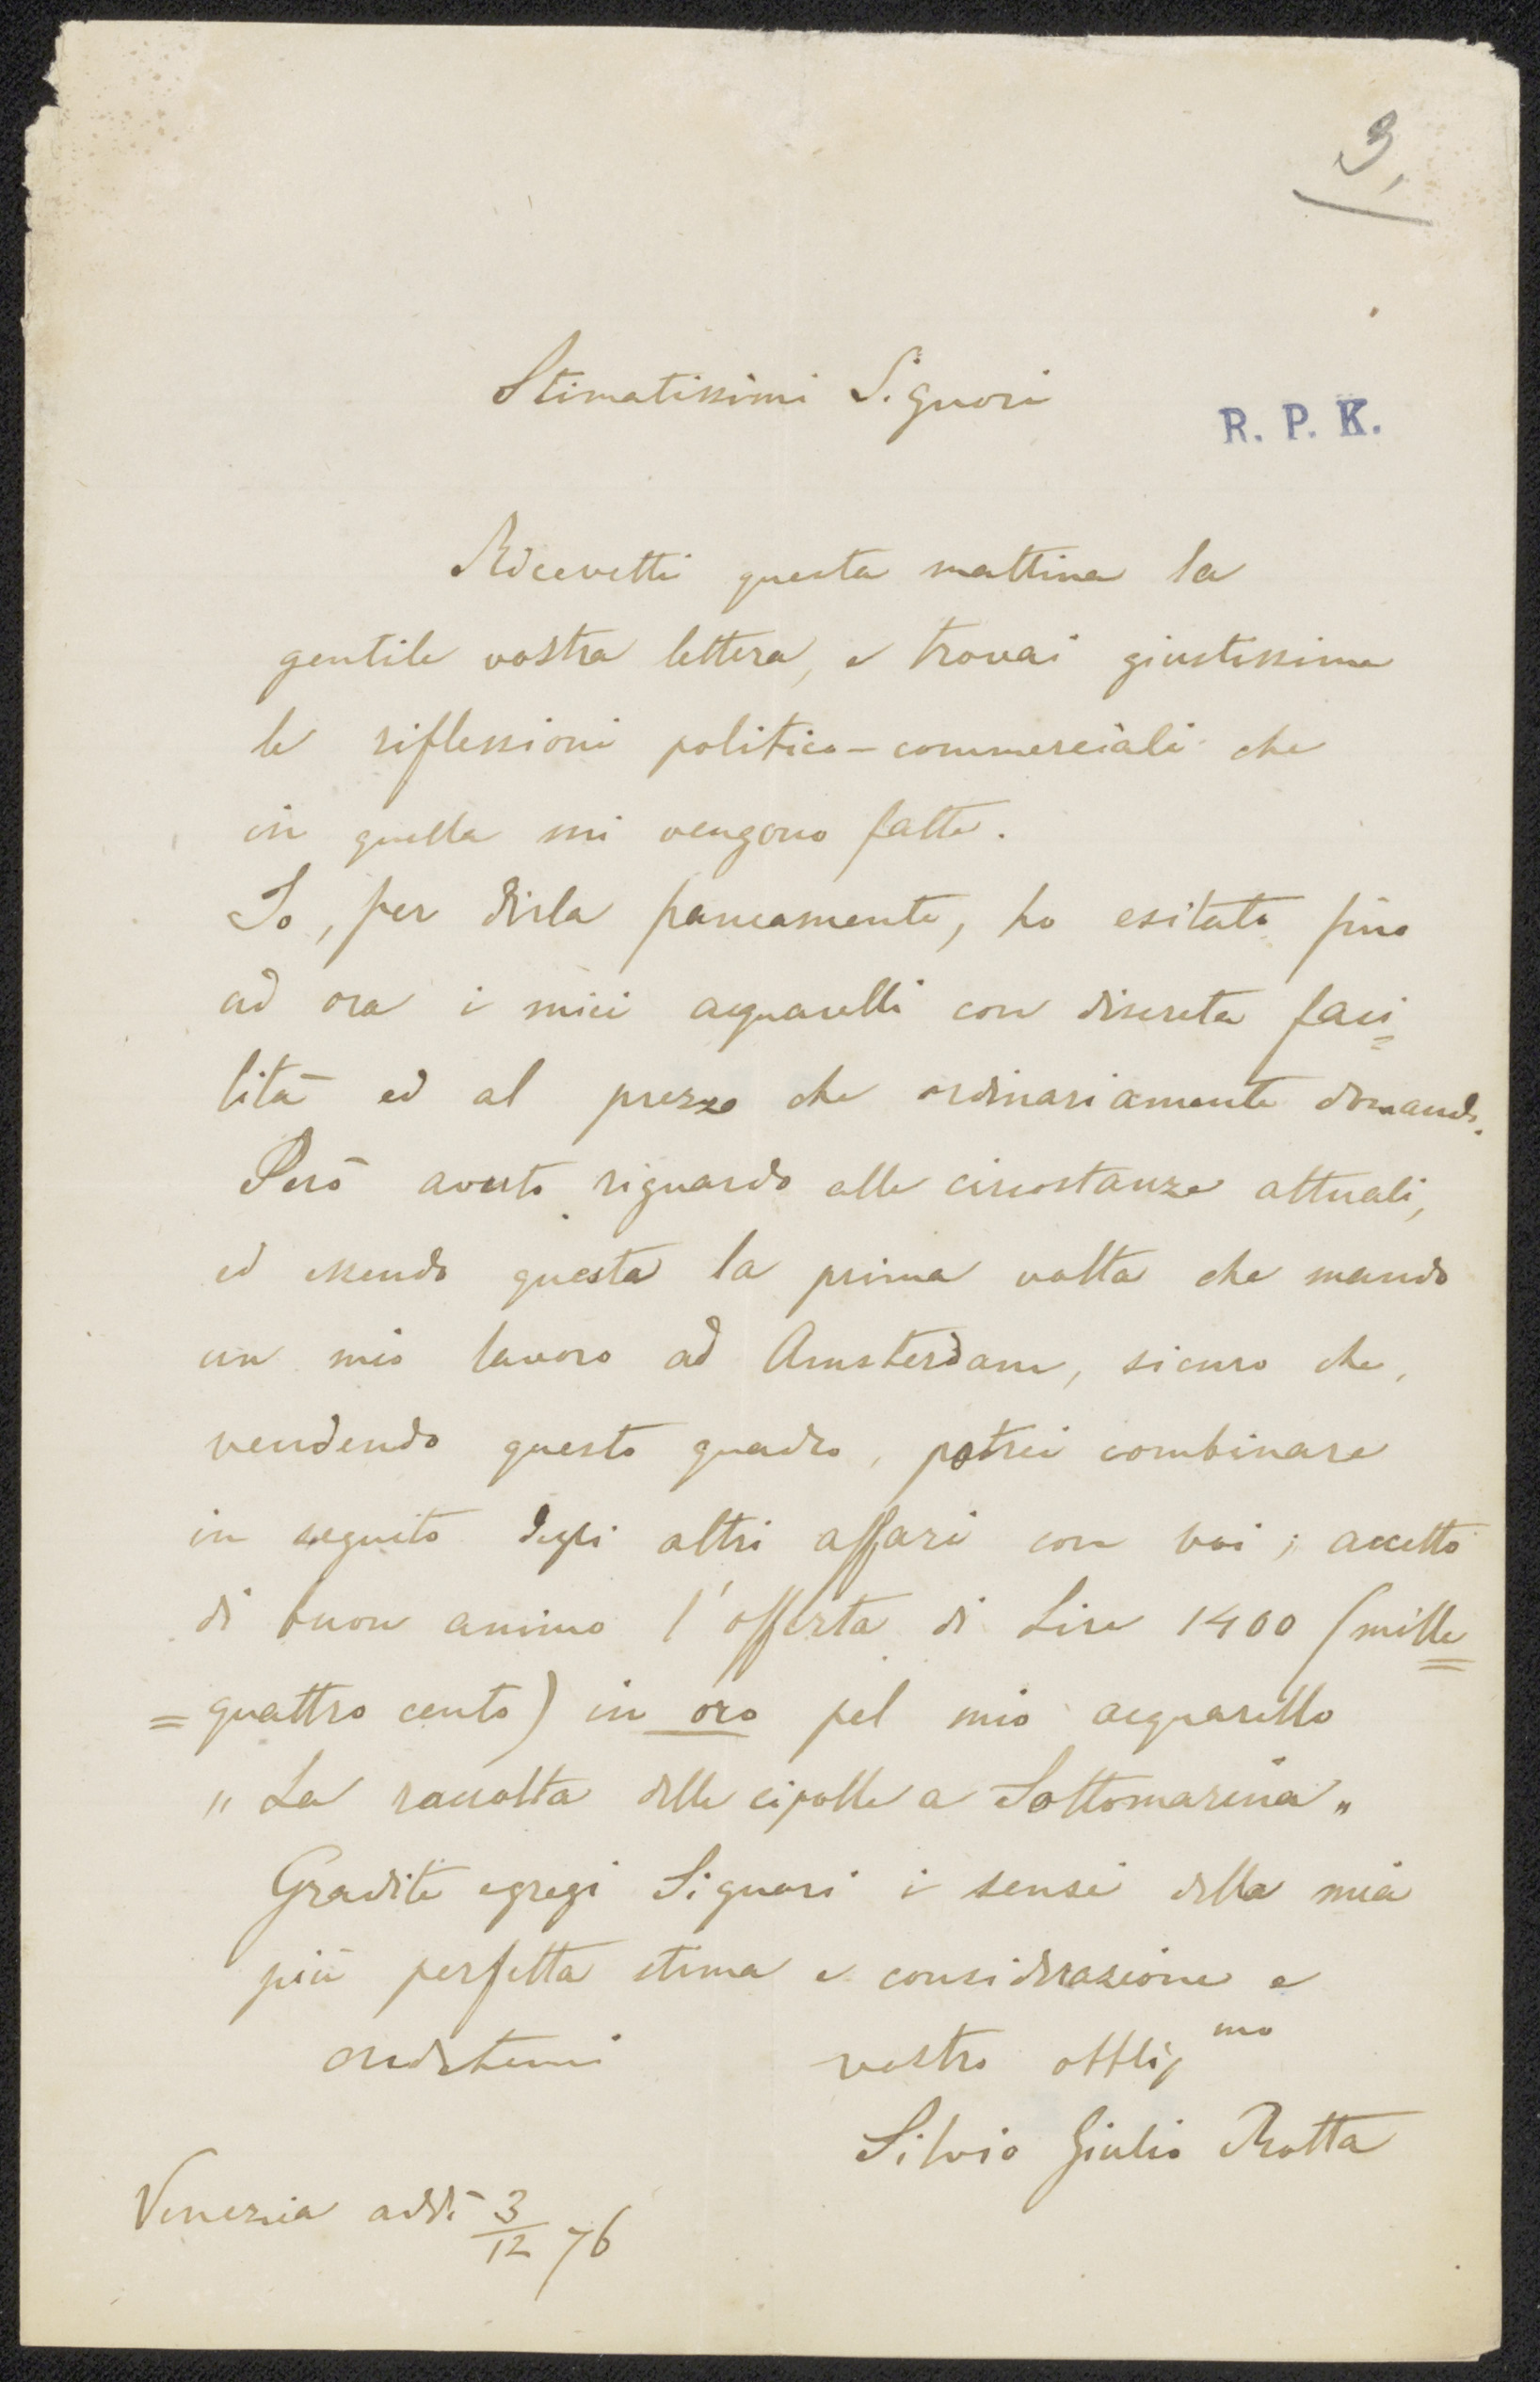 3,
Stimatissimi Signori
R. P. K.
Ricevetti questa mattina la
gentile vostra lettera, e trovai giustissime
le riflessioni politico-commerciali che
in quella mi vengono fatte.
Io, per dirla francamente, ho esitato fino
ad ora i miei acquarelli con discreta faci=
lità ed al prezzo che ordinariamente domando.
Però avuto riguardo alle circostanze attuali,
ed essendo questa la prima volta che mando
un mio lavoro ad Amsterdam, sicuro che,
vendendo questo quadro, potrei combinare
in seguito degli altri affari con voi; accetto
di buon animo l'offerta di Lire 1400 (mille=
=quattro cento) in oro pel mio acquarello
"La raccolta delle cipolle a Sottomarina"
Gradite egregi Signori i sensi della mia
più perfetta stima e considerazione e
credetemi vostro obblig mo
Silvio Giulio Rotta
Venezia addì 3/12 76